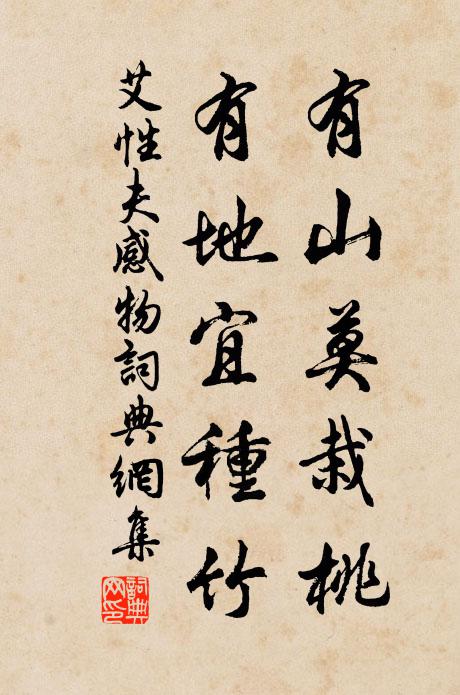 有山莫栽桃
有地宜種竹
艾性夫感物詞典網集
詞典網印